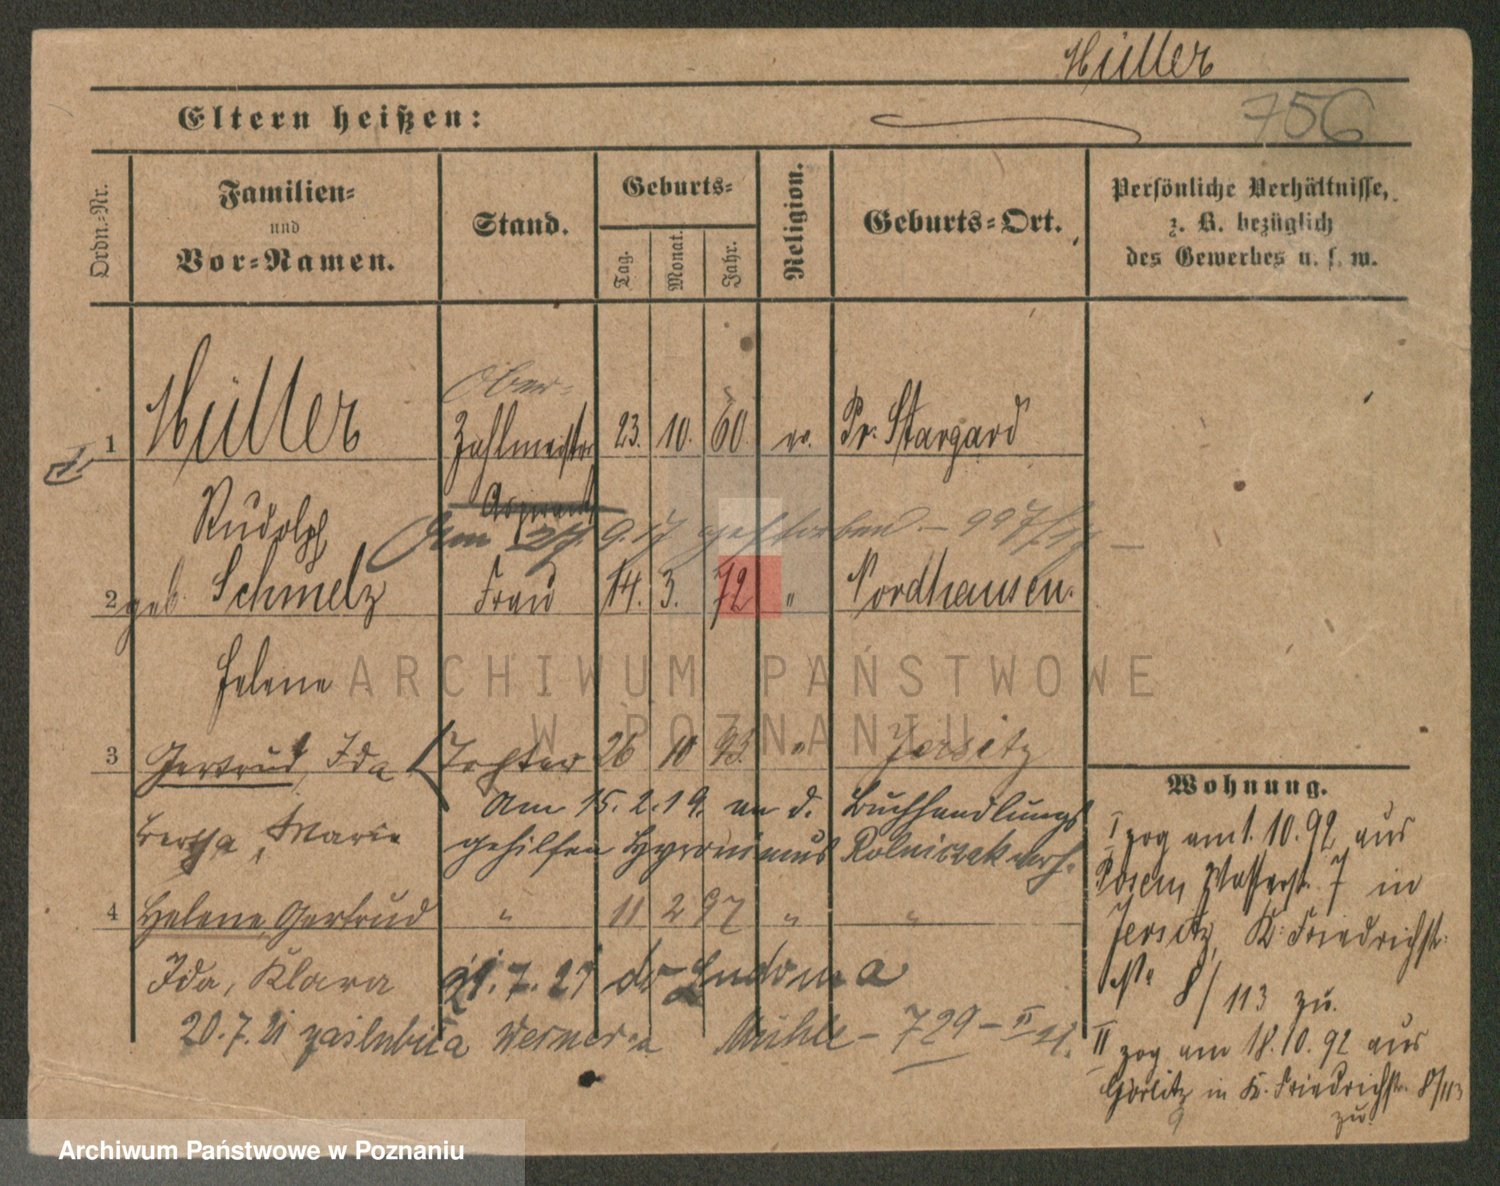 Müller
756
Eltern heißen:
Ordn.-Nr.
Familien-
und
Vor-Namen.
Stand.
Geburts-
Tag.
Monat.
Jahr.
Religion.
Geburts-Ort.
Persönliche Verhältnisse,
z. B. bezüglich
des Gewerbes u. s. w.
Ober-
1 Müller Zahlmeister 23. 10. 60. ev. Pr. Stargard
Aspirant
Rudolph
Am 27. 9. 17 gestorben. – 997/17
2 geb. Schmelz Frau 14. 3. 72 " Nordhausen.
Helene
3 Gertrud, Ida Tochter 26 10 93. " Jersitz
Am 15. 2. 19. an d. Buchhandlungs
Bertha, Marie gehilfen Hyronimus Rolniczak verh.
4 Helene, Gertrud " 11 2 97 " "
Ida, Klara 21. 7. 21 do Lndoma
20. 7. 21 zaślubiła Werner'a Mühle – 729 – II 21.
Wohnung.
I zog am 1. 10. 92 aus
Posen, Wasserst. 7 in
Jersitz, K. Friedrichst.
No 8/113 zu.
II zog am 18. 10. 92 aus
Görlitz in K. Friedrichst. 8/113
zu.
ARCHIWUM PAŃSTWOWE
W POZNANIU
Archiwum Państwowe w Poznaniu